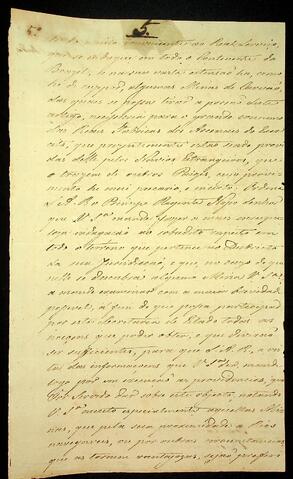 5.
5.º
Sendo muito conveniente ao Real Serviço,
que se indague em todo o Continente do
Brazil, e na sua vasta extensão ha, como
he de suppor, algumas Minas de Carvão,
das quaes se possa tirar a preciza deste
artigo, necessaria para o grande consumo
das Reaes Fabricas dos Arsenaes do Exer-
cito, que prezentemente estão sendo provi-
das delle pelos Navios Estrangeiros, que
o trazem de outros Paizes, cujo provi-
mento he mui precario, e incerto; Ordena
S. A. R. o Principe Regente Nosso Senhor
que V. S.ª mande fazer a mais escrupu-
loza indagação ao sobredito respeito em
todo o terreno que pertence ao Districto
da sua Jurisdicção, e que no cazo de que
nelle se descubra alguma Mina V. S.ª
a mande examinar com a maior brevidade
possivel, a fim de que possa participar
por esta Secretaria de Estado todas as
noçoens que poder obter, e que deverão
ser sufficientes, para que S. A. R., a vis-
ta das informaçoens que V. S.ª der, mande
logo pôr em execução as providencias, que
for Servido Dar sobre este objecto, notando
V. S.ª muito especialmente aquellas Mi-
nas, que pela sua proximidade a Rios
navegaveis, ou por outras circunstancias,
que as tornem vantajozas, sejão preferi